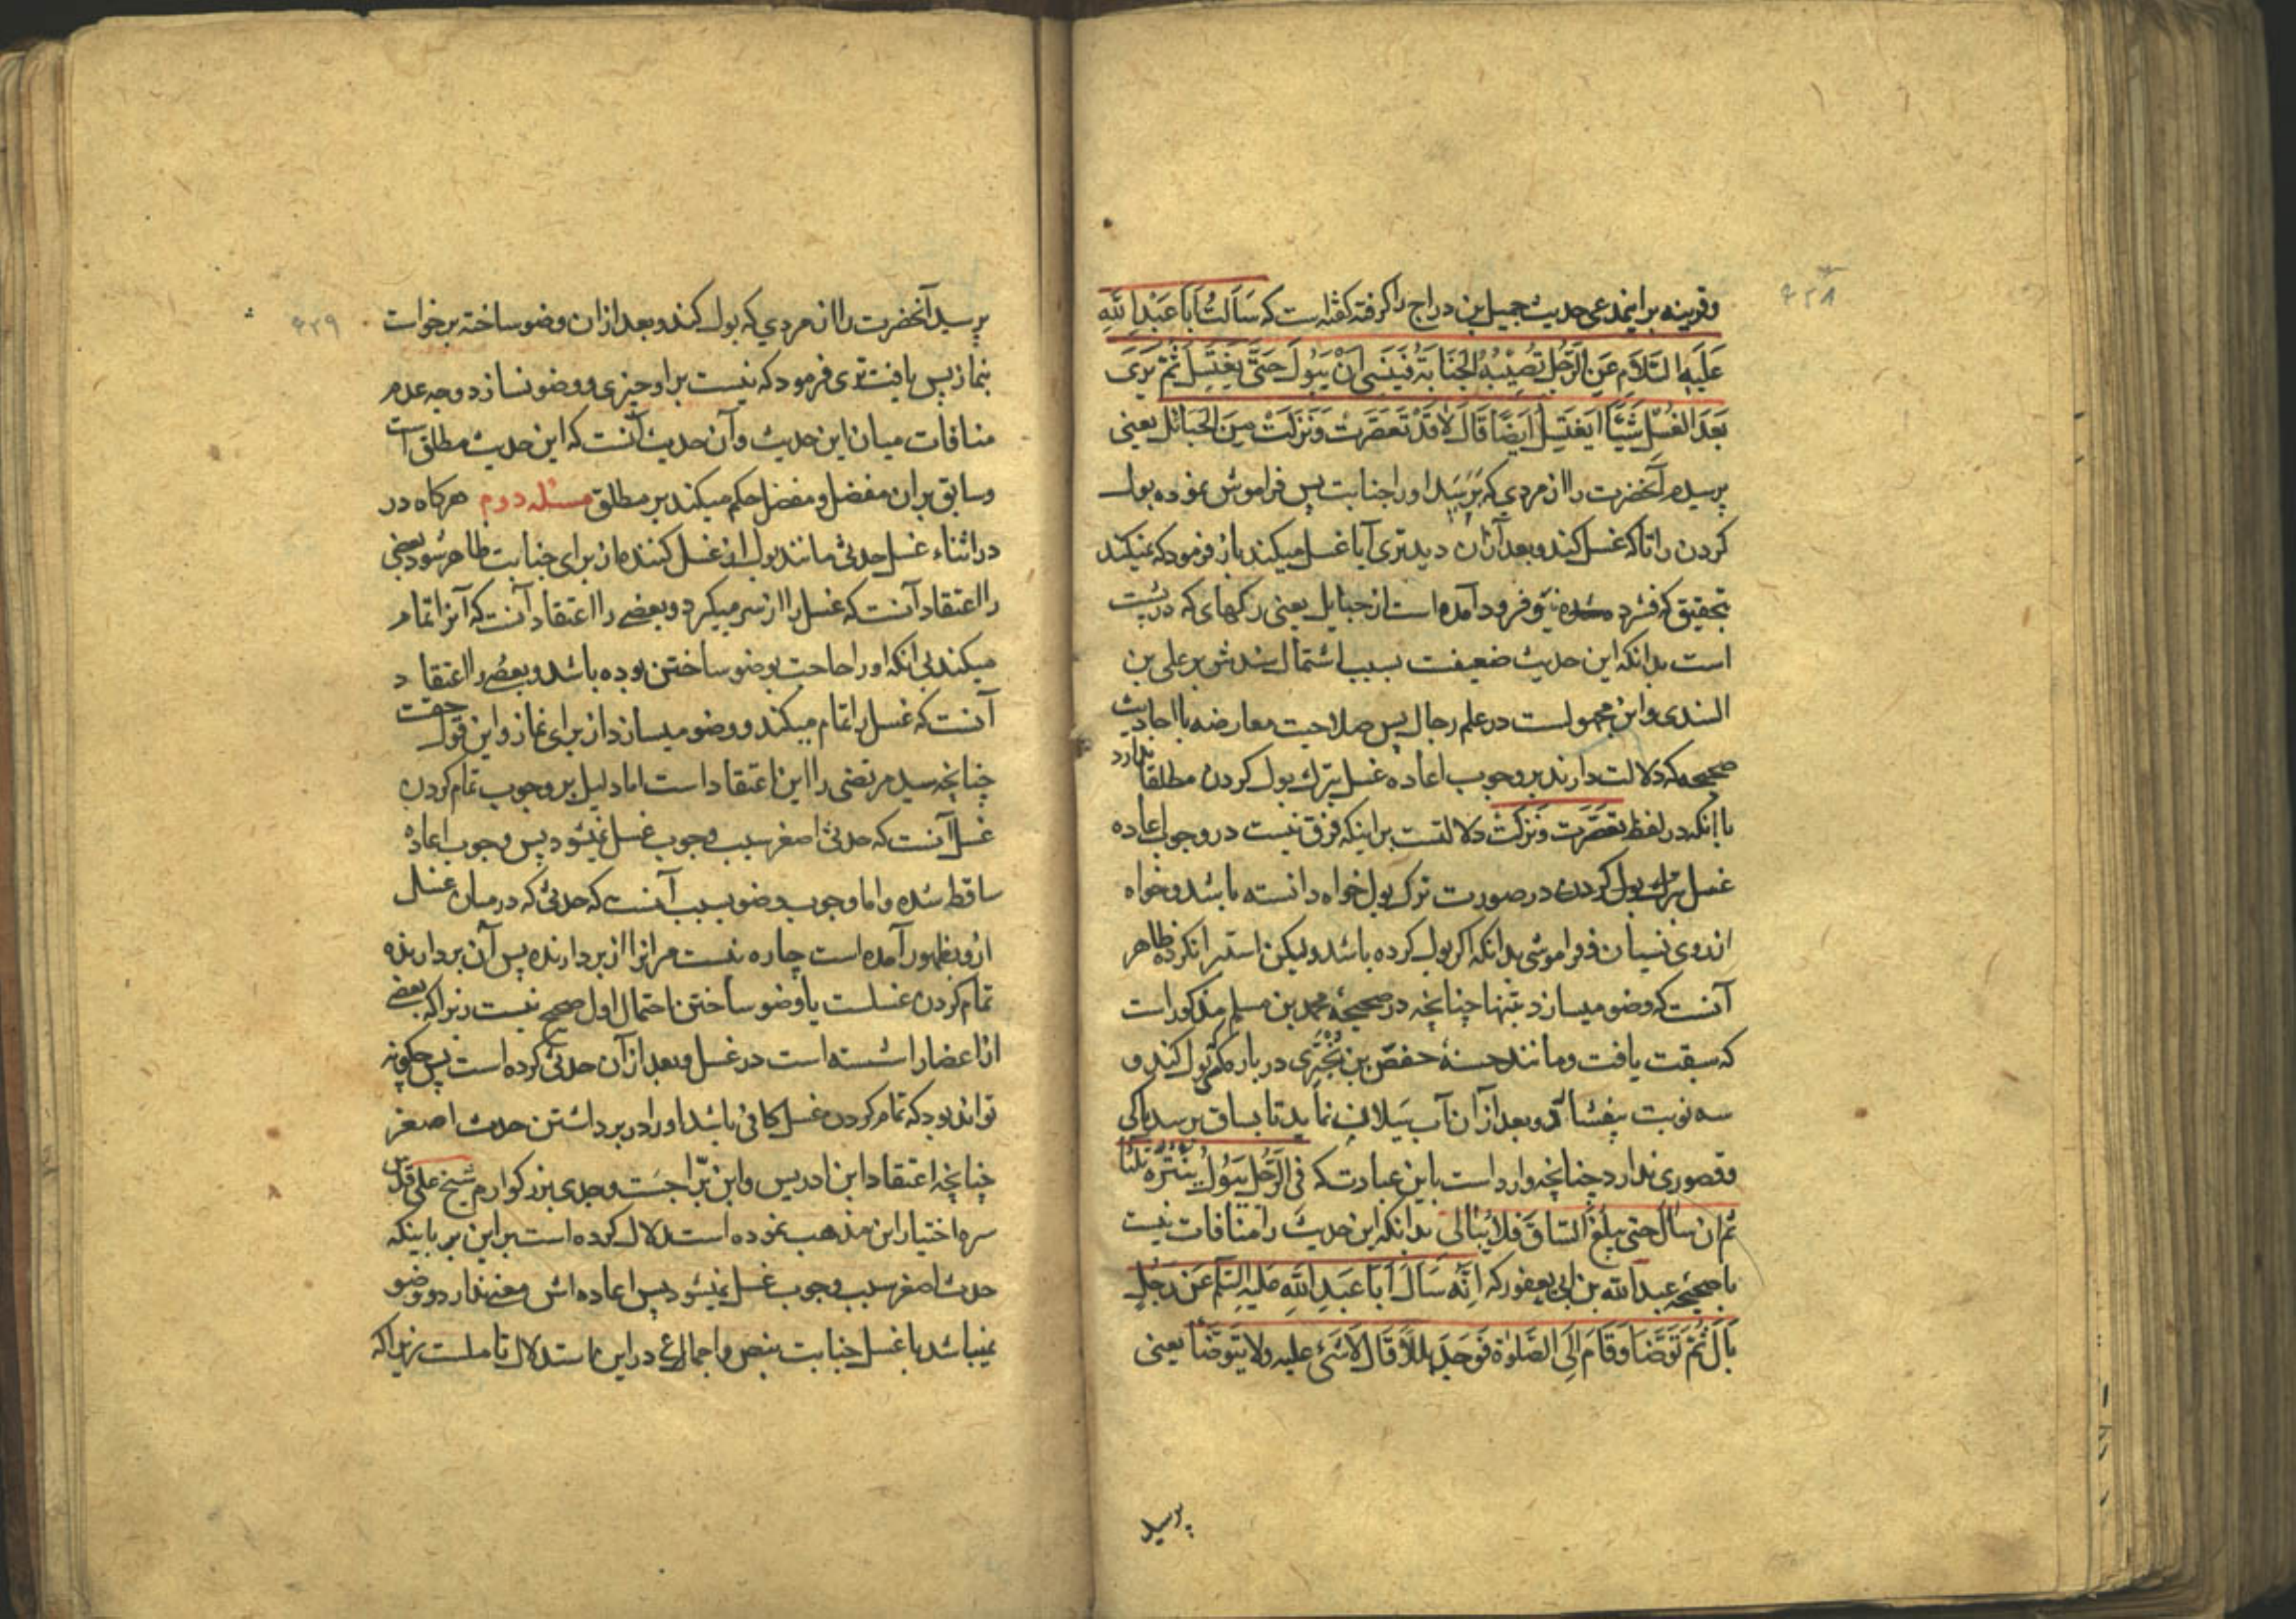 ۴۲۸
وقرینه براینمدعی حدیث جمیل بن دراج را گرفته گفته است که سَاَلتُ اَبا عَبْدِاللّٰهِ
عَلَیهِ السَّلام عَنِ الرَّجُلِ تُصِیْبُهُ الجَنَابَةُ فَیَنْسٰی اَنْ یَبُولَ حَتّٰی یَغْتَسِلَ ثُمَّ یَرٰی
بَعدَ الغُسْلِ شَیئًا اَیَغتَسِلُ اَیضًا قَالَ لا قَدْ تَعَصَّرَتْ وَنَزَلَتْ مِنَ الحَبَائِلِ یعنی
پرسیدم آنحضرت را از مردی که برسد او را جنابت پس فراموش نموده بول
کردن را تا که غسل کند و بعد از آن دید تری آیا غسل میکند باز فرمود که نمیکند
تحقیق که فشرد شده نیّ و فرود آمده است از حبایل یعنی رکهای که در پشت
است بدانکه این حدیث ضعیفست بسبب اشتمال سندش بر علی بن
السندی و این مجهولست در علم رجال پس صلاحیت معارضه با احادیث
صحیحه که دلالت دارند بر وجوب اعاده غسل بترک بول کردن مطلقا ندارد
با آنکه در لفظ تعصّرت ونزلت دلالتست بر اینکه فرق نیست در وجوب اعاده
غسل بترک بول کردن در صورت ترک بول خواه دانسته باشد وخواه
از روی نسیان و فراموشی بدانکه اگر بول کرده باشد ولیکن استبرا نکرده ظاهر
آنست که وضو میسازد بتنها چنانچه در صحیحهٔ محمد بن مسلم مذکور است
که سبقت یافت ومانند حسنهٔ حفص بن بُخْتَری در باره کم بول کند و
سه نوبت بیفشارد و بعد از آن آب سیلان نماید تا بساق برسد باکی
وقصوری ندارد چنانچه وارد است باین عبارت که فی الرَّجُلِ یَبُولُ یَنْتُرُهُ ثلثًا
ثم ان سال حتی یبلغ السّاق فلا یُبالی بدانکه این حدیث را منافات نیست
با صحیحه عبدالله بن ابی یعفور که اِنَّهُ سَاَلَ اَبا عَبدِ اللّٰهِ علیه السّلم عَن رَجُلٍ
بَالَ ثُمَّ تَوَضَّأَ وَقَامَ اِلَی الصَّلوٰةِ فَوَجَدَ بللًا قَالَ لا شَیٔ علیه ولا یَتَوَضَّأ یعنی
پرسید
۴۲۹
پرسید آنحضرت را از مردی که بول کند و بعد از ان وضو ساخته برخواست
بنماز پس یافت تری فرمود که نیست بر او چیزی و وضو نسازد وجه عدم
منافات میان این حدیث و آن حدیث آنست که این حدیث مطلق است
وسابق بر ان مفصل ومفصل حکم میکند بر مطلق مسئله دوم هرکاه در
در اثناء غسل حدثی مانند بول از غسل کننده از برای جنابت ظاهر شود بعضی
را اعتقاد آنست که غسل را از سر میگیرد و بعضے را اعتقاد آنست که آنرا تمام
میکند بی آنکه او را حاجت بوضو ساختن بوده باشد وبعضے را اعتقاد
آنست که غسل را تمام میکند ووضو میسازد از برای نماز و این قول حقست
چنانچه سید مرتضی را این اعتقاد است اما دلیل بر وجوب تمام کردن
غسل آنست که حدثِ اصغر سبب وجوب غسل نمیشود پس وجوب اعادهٔ
ساقط شده و اما وجوب وضو بسبب آنست که حدثی که در میان غسل
ازو بظهور آمده است چاره نیست مرانرا از بردارنده پس آن بردارنده
تمام کردن غسلست یا وضو ساختن احتمال اول صحیح نیست زیرا که بعضے
از اعضا را شسته است در غسل وبعد از آن حدثی کرده است پس چکونه
تواند بود که تمام کردن غسل کافی باشد او را در برداشتن حدث اصغر
چنانچه اعتقاد ابن ادریس وابن برّاجست وجدی بزرکوارم شیخ علی قدس
سره اختیار این مذهب نموده است استدلال کرده است بر این بر باینکه
حدث اصغر سبب وجوب غسل نمیشود پس اعاده اش معنی ندارد ووضو
نمیباشد با غسل جنابت بنص و اجماع در این استدلال تاملست زیرا که